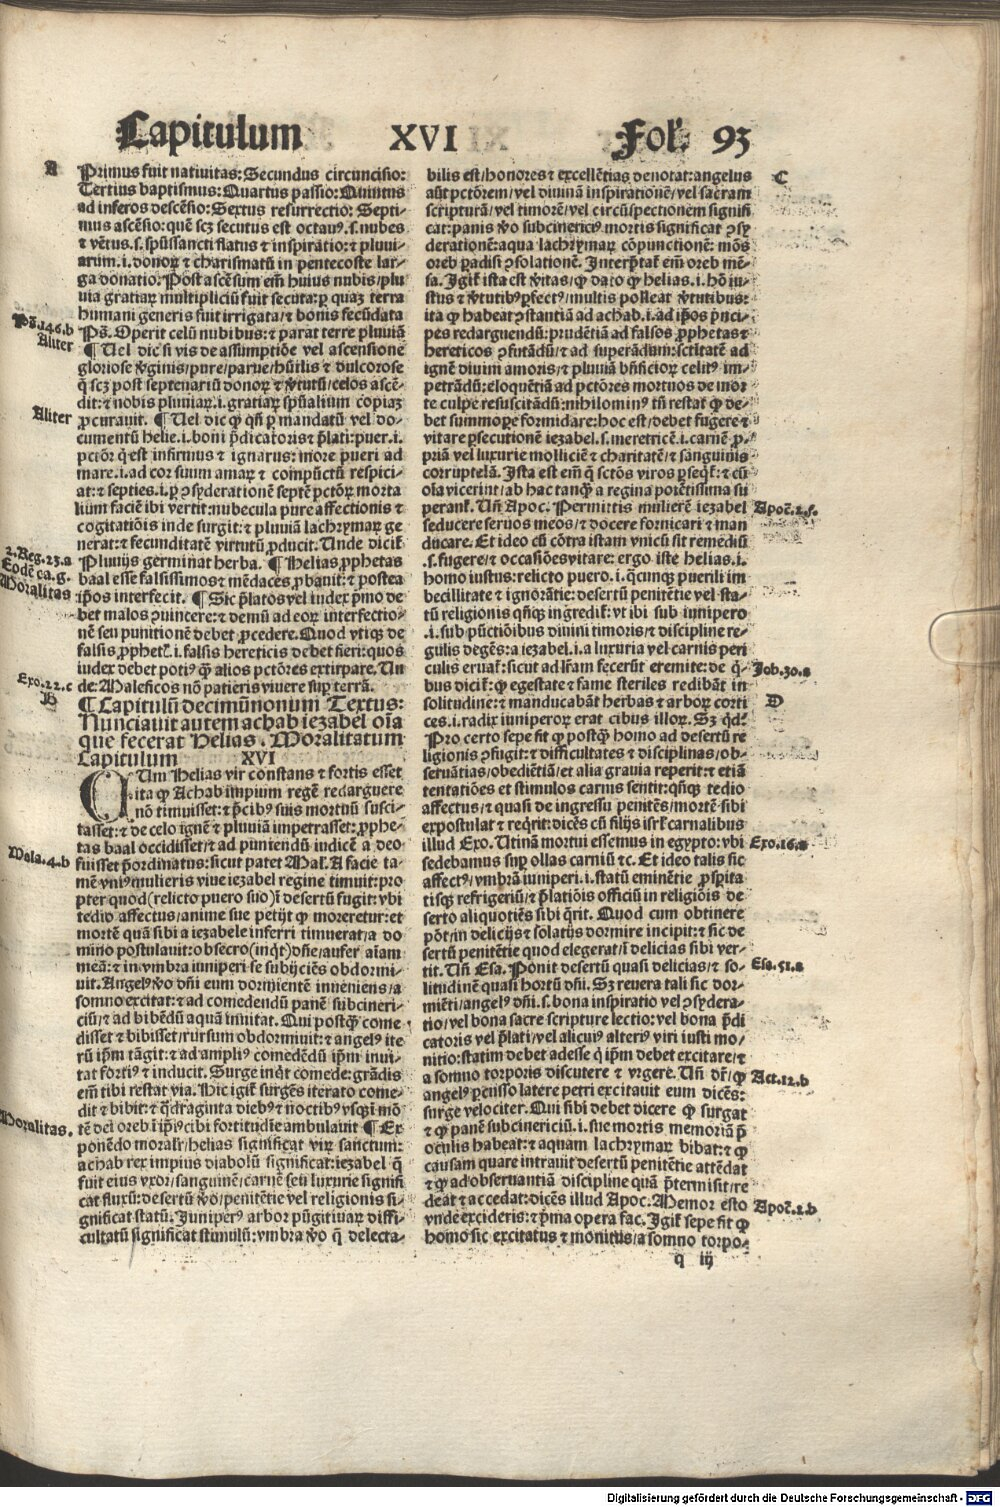 Capitulum XVI Fol. 93
A
Primus fuit nativitas: Secundus circuncisio:
Tertius baptismus: Quartus passio: Quintus
ad inferos descēsio: Sextus resurrectio: Septi-
mus ascēsio: quē scz secutus est octauꝰ .s. nubes
⁊ vētus .s. spūssancti flatus ⁊ inspiratio: ⁊ pluui-
arum .i. donoꝝ ⁊ charismatū in pentecoste lar-
ga donatio: Post ascēsum em̄ huius nubis/plu
uia gratiaꝝ multipliciū fuit secuta: ꝑ quaz terra
humani generis fuit irrigata/⁊ bonis fecūdata
Ps. 146.b
Pś. Operit celū nubibus: ⁊ parat terre pluuiā
Aliter
¶ Uel dic si vis de assumptiōe vel ascensione
gloriose v̄ginis/pure/parue/hūilis ⁊ dulcorose
q̄ scz post septenariū donoꝝ ⁊ v̄tutū/celos ascē-
dit: ⁊ nobis pluuiaꝝ .i. gratiaꝝ spūalium copiaz
Aliter
ꝓcurauit. ¶ Uel dic ꝙ qn̄ ꝑ mandatū vel do-
cumentū helie .i. boni p̄dicatoris ⁊ p̄lati: puer .i.
pctōr q̄ est infirmus ⁊ ignarus: more pueri ad
mare .i. ad cor suum amaꝝ ⁊ compūctū respici-
at: ⁊ septies .i. ꝑ ꝯsyderationē septē pctōꝝ morta
liūm faciē ibi vertit: nubecula pure affectionis ⁊
cogitatiōis inde surgit: ⁊ pluuiā lachrymaꝝ ge
nerat: ⁊ fecunditatē virtutū ꝓducit. Unde dicit᷑
2. Reg. 23.a
Pluuijs germinat herba. ¶ Helias ꝓphetas
Eodē ca. g.
baal esse falsissimos ⁊ mēdaces ꝓbauit: ⁊ postea
Moralitas
ip̄os interfecit. ¶ Sic p̄latos vel iudex p̄mo de
bet malos ꝯuincere: ⁊ demū ad eoꝝ interfectio-
nē seu punitionē debet ꝓcedere. Quod vtiqꝫ de
falsis ꝓphet᷑ .i. falsis hereticis debet fieri: quos
iudex debet potiꝰ q̄ꝫ alios pctōres extirpare. Un
Exo. 22.c
de: Maleficos nō patieris viuere sup̄ terrā.
B
¶ Capitulū decimūnonum Textus:
Nunciauit autem achab iezabel oīa
que fecerat Helias. Moralitatum
Capitulum XVI
CUm Helias vir constans ⁊ fortis esset
ita ꝙ Achab impium regē redarguere
nō timuisset: ⁊ p̄cibꝰ suis mortuū susci-
tasset: ⁊ de celo ignē ⁊ pluuiā impetrasset: ꝓphe-
tas baal occidisset/⁊ ad puniendū iudicē a deo
Mala. 4.b
fuisset p̄ordinatus: sicut patet Mal. A facie ta-
mē vniꝰ mulieris viue iezabel regine timuit: pro
pter quod (relicto puero suo) ī desertū fugit: vbi
tedio affectus/anime sue petijt ꝙ moreretur: et
mortē quā sibi a iezabele inferri timuerat/a do
mino postulauit: obsecro (inq̄t) dn̄e/aufer aīam
meā: ⁊ in vmbra iuniperi se subijciēs obdormi-
uit. Angelꝰ v̄o dn̄i eum dormientē inueniens/a
somno excitat: ⁊ ad comedendū panē subcineri-
ciū/⁊ ad bibēdū aquā inuitat. Qui postq̄ꝫ come
disset ⁊ bibisset/rursum obdormiuit: ⁊ angelꝰ ite
rū ip̄m tāgit: ⁊ ad ampliꝰ comedēdū ip̄m inui-
tat fortiꝰ ⁊ inducit. Surge inq̄t comede: grādis
em̄ tibi restat via. Hic igit᷑ surgēs iterato come-
dit ⁊ bibit: ⁊ q̄draginta diebꝰ ⁊ noctibꝰ vsqꝫ ī mō
Moralitas.
tē dei oreb ī ip̄iꝰ cibi fortitudīe ambulauit ¶ Ex
ponēdo moralr̄/helias significat viꝝ sanctum:
achab rex impius diabolū significat: iezabel q̄
fuit eius vxor/sanguinē/carnē seu luxurie signifi
cat fluxū: desertū v̄o/penitētie vel religionis si-
gnificat statū: Juniperꝰ arbor pūgitiuaꝝ diffi-
cultatū significat stimulū: vmbra v̄o q̄ delecta-
bilis est/honores ⁊ excellētias denotat: angelus
C
aūt pctōrem/vel diuinā inspirationē/vel sacram
scripturā/vel timorē/vel circūspectionem signifi
cat: panis v̄o subcinericiꝰ mortis significat ꝯsy
derationē: aqua lachrymaꝝ cōpunctionē: mōs
oreb paradisi ꝯsolationē. Interp̄tat᷑ em̄ oreb mē-
sa. Igit᷑ ista est v̄itas/ꝙ dato ꝙ helias .i. hō iu-
stus ⁊ v̄tutibꝰ ꝑfectꝰ/multis polleat v̄tutibus:
ita ꝙ habeat ꝯstantiā ad achab .i. ad ip̄os p̄nci-
pes redarguendū: prudētiā ad falsos ꝓphetas ⁊
hereticos ꝯfutādū/⁊ ad superādum: sctītatē ad
ignē diuini amoris/⁊ pluuiā bn̄ficioꝝ celitꝰ im-
petrādū: eloquētiā ad pctōres mortuos de mor
te culpe resuscitādū: nihilominꝰ tn̄ restat ꝙ de-
bet summope formidare: hoc est/debet fugere ⁊
vitare ꝑsecutionē iezabel .s. meretricē .i. carnē ꝓ-
priā vel luxurie molliciē ⁊ charitatē/⁊ sanguinis
corruptelā. Ista est em̄ q̄ sctōs viros ꝑseq̄t᷑: ⁊ cū
oīa vicerint/ab hac tanq̄ꝫ a regina potētissima su
perant᷑. Un̄ Apoc. Permittis mulierē iezabel
Apoc̄. 2.f.
seducere seruos meos/⁊ docere fornicari ⁊ man
ducare. Et ideo cū cōtra istam vnicū sit remediū
.s. fugere/⁊ occasiōes vitare: ergo iste helias .i.
homo iustus: relicto puero .i. q̄cunqꝫ puerili im
becillitate ⁊ ignorātie: desertū penitētie vel sta-
tū religionis qn̄qꝫ ingredit᷑: vt ibi sub iunipero
.i. sub pūctiōibus diuini timoris/⁊ discipline re-
gulis degēs: a iezabel .i. a luxuria vel carnis peri
culis eruat᷑: sicut ad lr̄am fecerūt eremite: de q̄-
Job. 30.a
bus dicit᷑: ꝙ egestate ⁊ fame steriles redibāt in
D
solitudine: ⁊ manducabāt herbas ⁊ arboꝝ corti
ces .i. radix iuniperoꝝ erat cibus illoꝝ. Sz qd̄?
Pro certo sepe fit ꝙ postq̄ꝫ homo ad desertū re
ligionis ꝯfugit: ⁊ difficultates ⁊ disciplinas/ob-
seruātias/obediētiā/et alia grauia reperit: ⁊ etiā
tentatiōes et stimulos carnis sentit: qn̄qꝫ tedio
affectus/⁊ quasi de ingressu penitēs/mortē sibi
expostulat ⁊ req̄rit: dicēs cū filijs isrl᷑ carnalibus
illud Exo. Utinā mortui essemus in egypto: vbi
Exo. 16.a
sedebamus sup̄ ollas carniū ⁊c. Et ideo talis sic
affectꝰ/vmbrā iuniperi .i. statū eminētie ꝓsp̄ita
tisqꝫ refrigeriū/⁊ p̄latiōis officiū in religiōis de
serto aliquotiēs sibi q̄rit. Quod cum obtinere
pōt/in delicijs ⁊ solatijs dormire incipit: ⁊ sic de
sertū penitētie quod elegerat/ī delicias sibi ver-
tit. Un̄ Esa. Ponit desertū quasi delicias/⁊ so-
Esa. 51.a
litudinē quasi hortū dn̄i. Sz reuera tali sic dor-
miēti/angelꝰ dn̄i .s. bona inspiratio vel ꝯsydera-
tio/vel bona sacre scripture lectio: vel bona p̄di
catoris vel p̄lati/vel alicuiꝰ alterꝰ viri iusti mo-
nitio: statim debet adesse q̄ ip̄m debet excitare/⁊
a somno torporis discutere ⁊ vrgere. Un̄ dr̄/ꝙ
Act. 12.b
angelꝰ ꝑcusso latere petri excitauit eum dicēs:
surge velociter. Qui sibi debet dicere ꝙ surgat
⁊ ꝙ panē subcinericiū .i. sue mortis memoriā p̄
oculis habeat: ⁊ aquam lachrymaꝝ bibat: ⁊ ꝙ
causam quare intrauit desertū penitētie attēdat
⁊ ꝙ ad obseruantiā discipline quā p̄termisit/re
deat ⁊ accedat: dicēs illud Apoc. Memor esto
Apoc̄. 2.b
vnde excideris: ⁊ p̄ma opera fac. Igit᷑ sepe fit ꝙ
homo sic excitatus ⁊ monitus/a somno torpo-
q iij
Digitalisierung gefördert durch die Deutsche Forschungsgemeinschaft - DFG